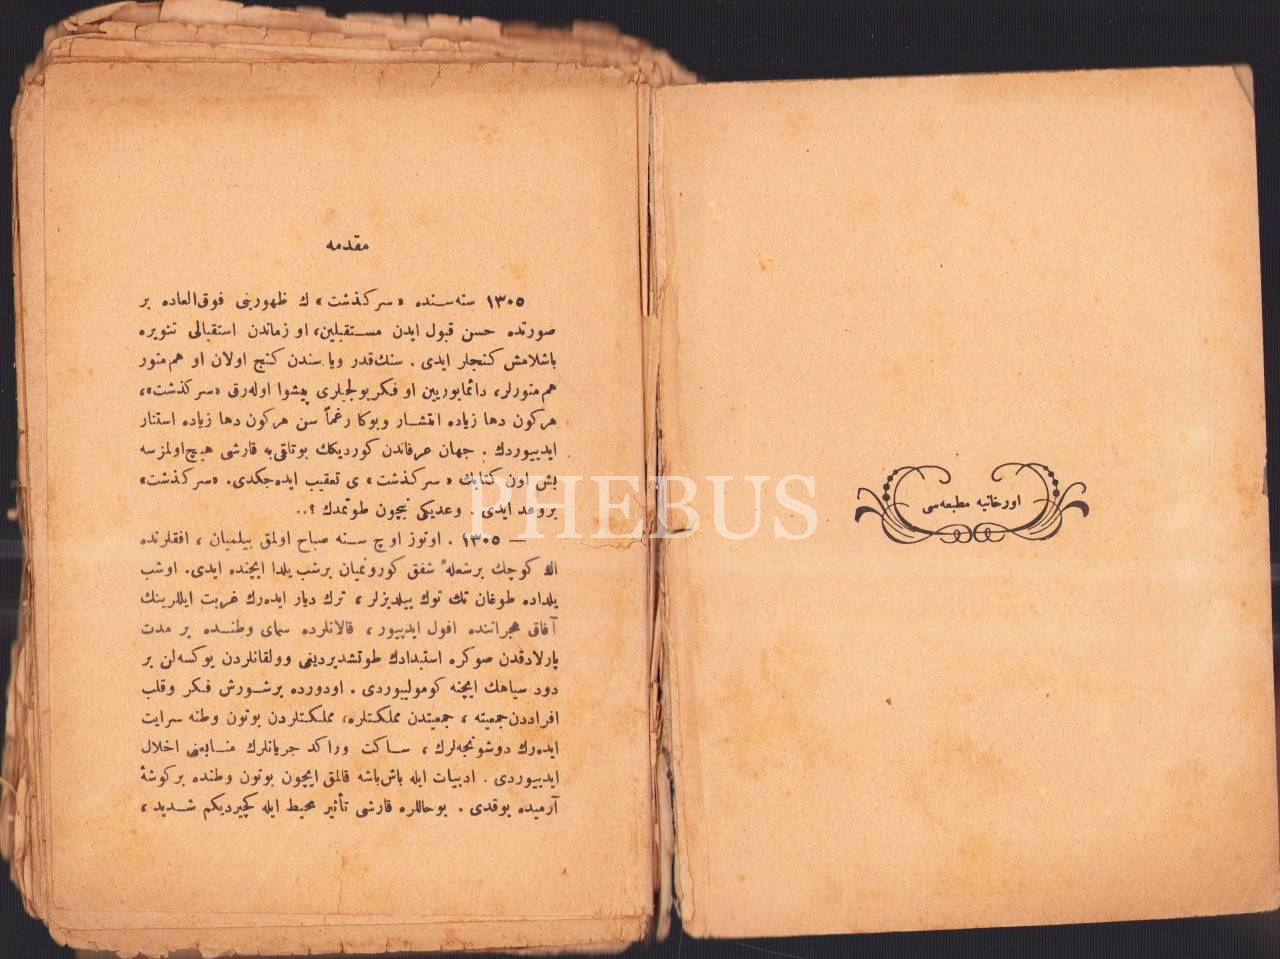 اورخانیه مطبعه‌سی
مقدمه
١٣٠٥ سنه‌سنده «سرگذشت» ك ظهورینی فوق‌العاده بر
صورتده حسن قبول ایدن مستقبلین، او زماندن استقبالی تنویره
باشلامش کنجلر ایدی . سنك‌قدر ویا سندن کنج اولان او هم‌منور
هم‌منورلر، دائمایوریین او فکریولجیلری پیشوا اوله‌رق «سرگذشت»،
هرکون دها زیاده انتشار وبوکا رغماً سن هرکون دها زیاده استتار
ایدییوردك . جهان عرفاندن کوردیکك بوتلقی‌یه قارشی هیچ‌اولمزسه
بش اون کتابك «سرگذشت» ی تعقیب ایده‌جکدی. «سرگذشت»
بروعد ایدی . وعدیکی نیچون طوتمدك ؟..
— ١٣٠٥ . اوتوز اوچ سنه صباح اولمق بیلمیان ، افقلرنده
اك کوچك برشعلهٔ شفق کورونمیان برشب یلدا ایچنده ایدی. اوشب
یلداده طوغان تك توك ییلدیزلر ، ترك دیار ایده‌رك غربت ایللرینك
آفاق هجراننده افول ایدییور ، قالانلرده سمای وطنده بر مدت
پارلادقدن صوکره استبدادك طوتشدیردیغی وولقانلردن یوکسه‌لن بر
دود سیاهك ایچنه کومولییوردی . اودورده برشورش فکر وقلب
افراددن‌جمعیته ، جمعیتدن مملکتلره، مملکتلردن بوتون وطنه سرایت
ایده‌رك دوشونجه‌لرك ، ساکت وراکد جریانلرك منابعنی اخلال
ایدییوردی . ادبیات ایله باش‌باشه قالمق ایچون بوتون وطنده برکوشهٔ
آرمیده یوقدی . بوحاللره قارشی تأثیر محیط ایله کچیردیکم شدید ،
PHEBUS